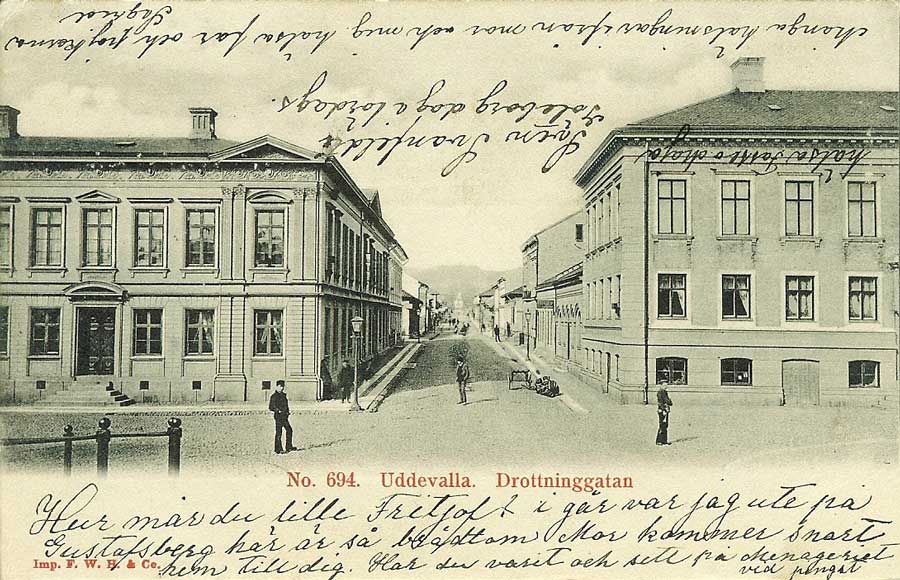 många hälsningar ifrån mor och mig. hälsa far och pojkarna
Sigrid
Sven Tranfeldt
Göteborg dog i lördags.
hälsa
No. 694. Uddevalla. Drottninggatan
Hur mår du lille Fritjof i går var jag ute på
Gustafsberg här är så brådtom Mor kommer snart
hem till dig. Har du varit och sett på Menageriet
vid
Imp. F. W. H. & Co.